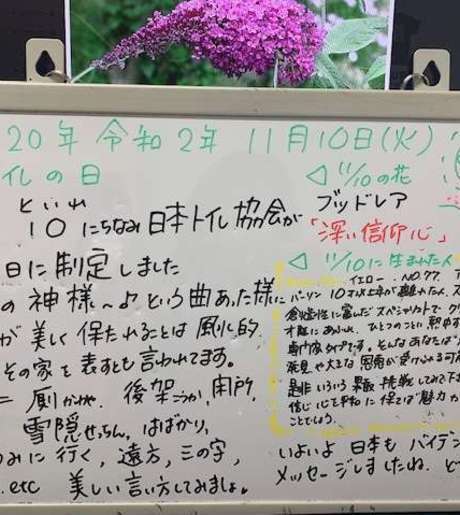 20年 令和2年 11月10日(火)
イレの日
といれ
10にちなみ日本トイレ協会が
日に制定しました
の神様～♪という曲あった様に
が美しく保たれることは風水的
その家を表すとも言われてます。
= 厠かわや. 後架こうか, 閑所.
雪隠せっちん, はばかり,
みに行く, 遠方, 三の字,
.etc 美しい言い方してみましょ。
◁ 11/10の花
ブッドレア
「深い信仰心」
◁ 11/10に生まれた人
イエロー. NO.77.
パーソン 10才以上年が離れた人.
創造性に富んだスペシャリストで
才能にあふれ、ひとつのことに熱中す
専門家タイプです。そんなあなたは
発見や大きな恩恵が受けられる可
是非いろいろ興味, 挑戦してみて下
信じ心を平和に保てば魅力
ことでしょう.
いよいよ 日本も バイデン
メッセージしましたね.